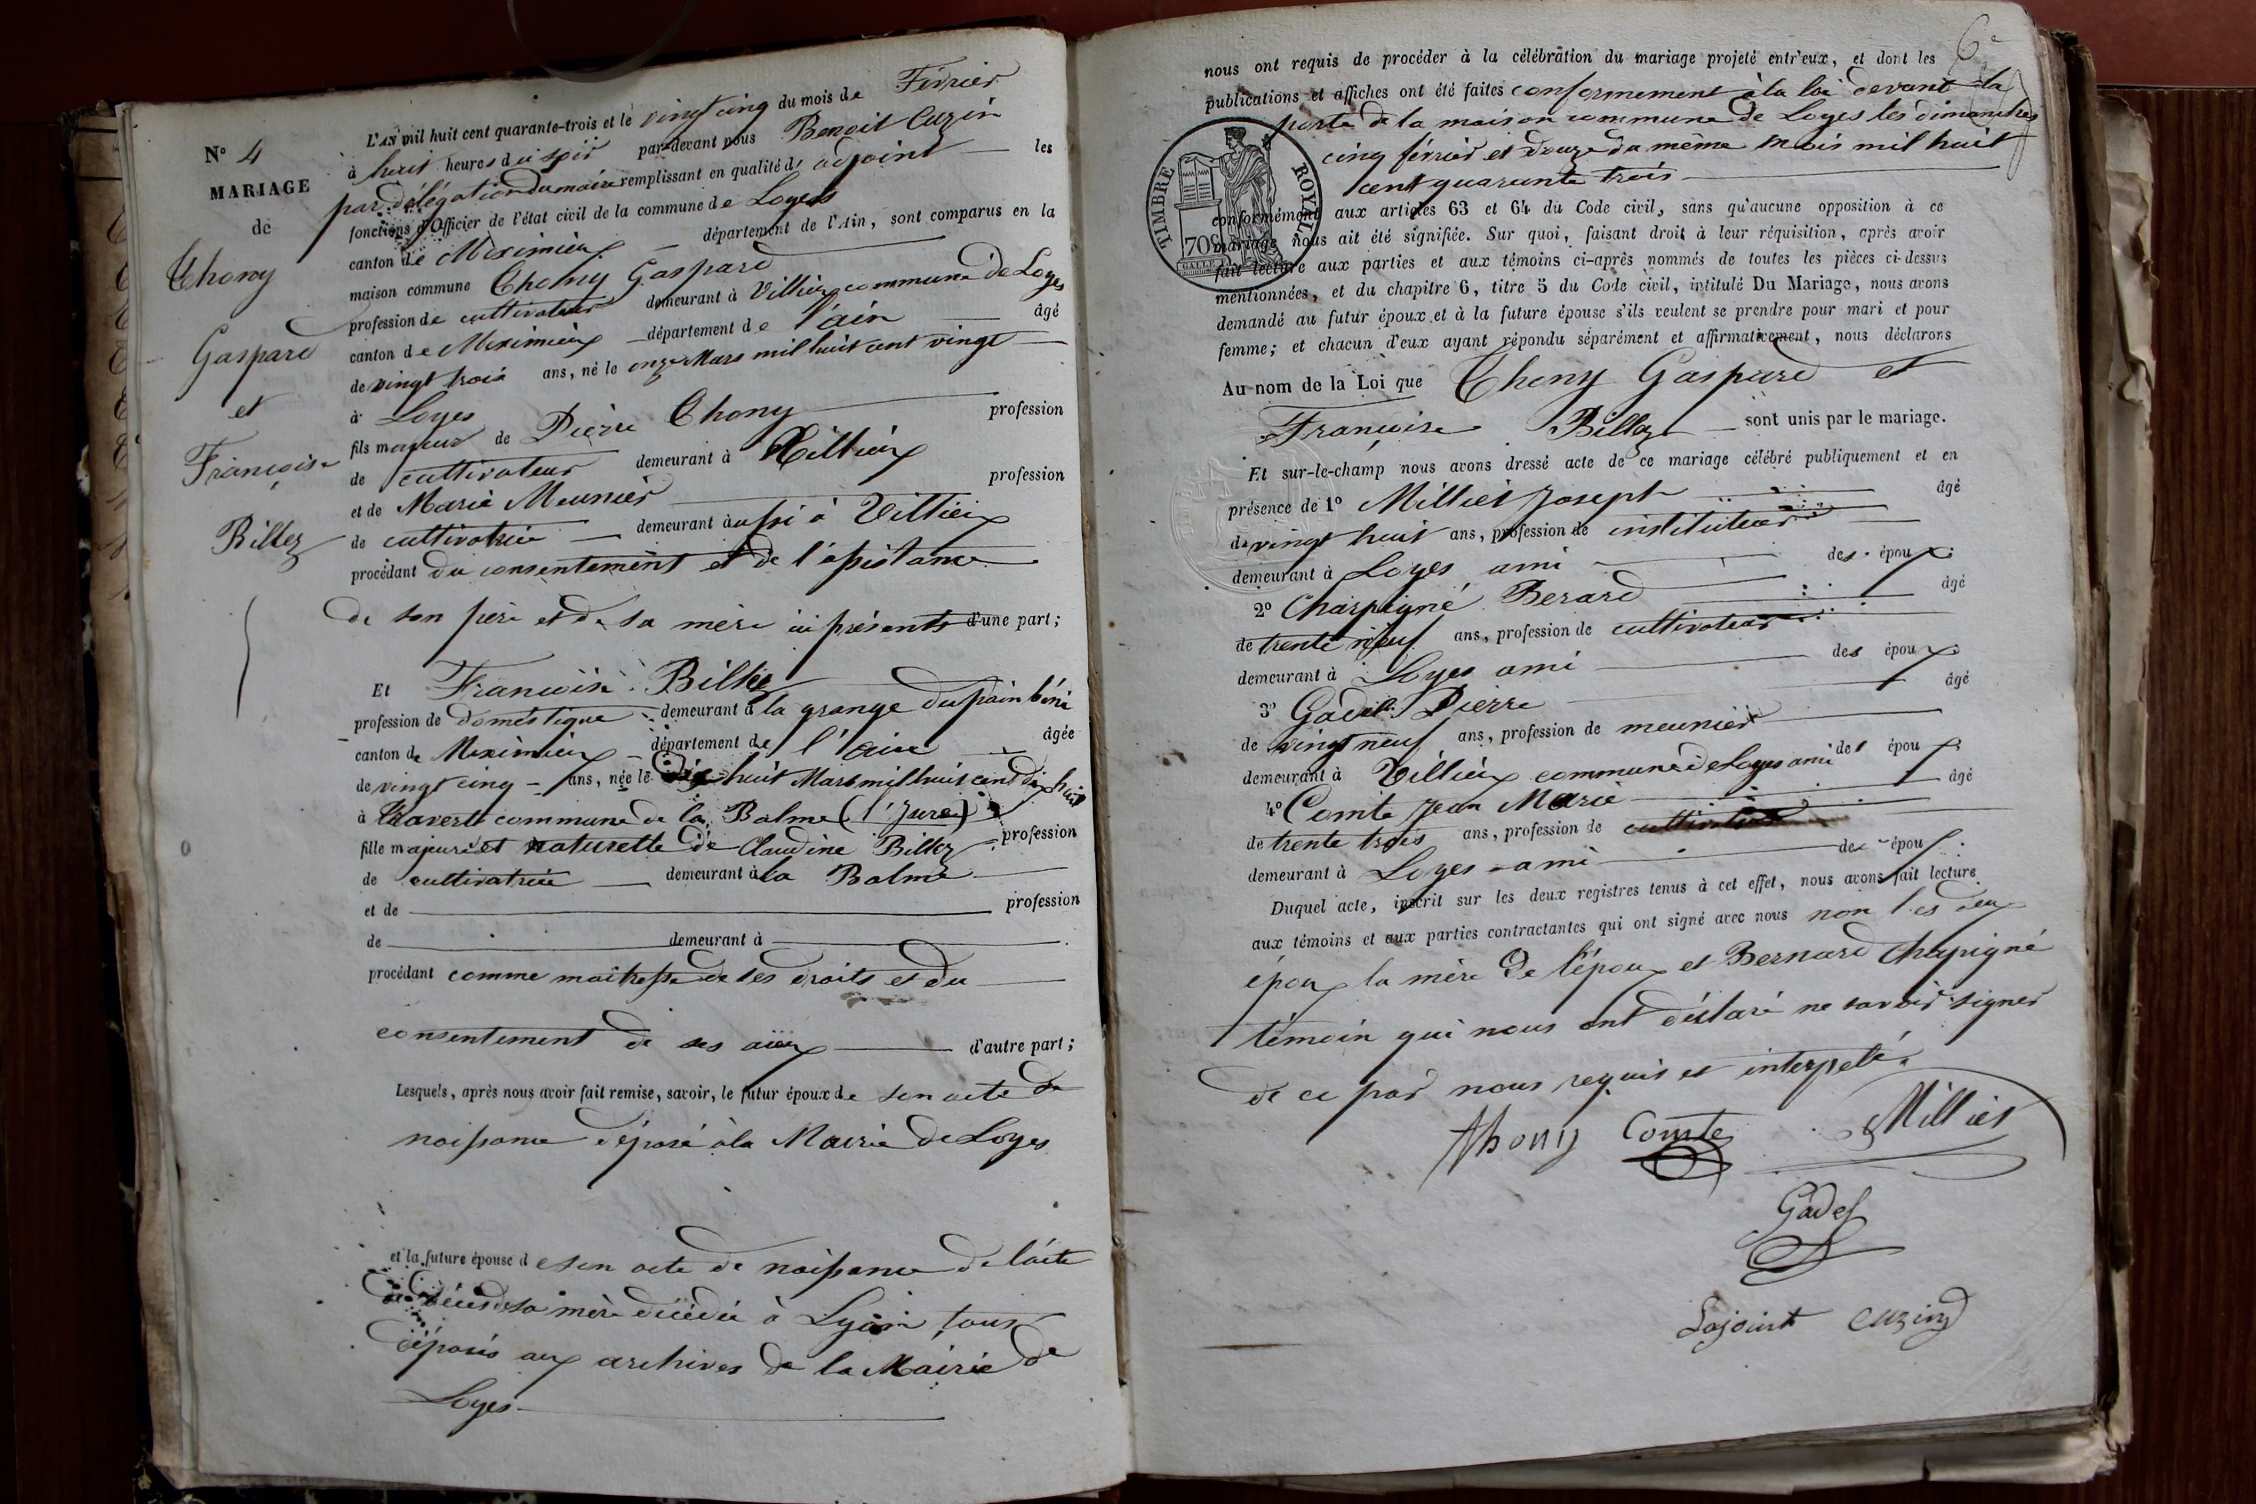 N° 4
MARIAGE
de
Thony
Gaspard
et
Françoise
Billez
L'AN mil huit cent quarante-trois et le vingt cinq du mois de Février
à huit heures du soir par-devant nous Benoit Cuzin
par délégation du maire remplissant en qualité d'adjoint les
fonctions d'Officier de l'état civil de la commune de Loyes
canton de Meximieux département de l'Ain, sont comparus en la
maison commune Thony Gaspard
profession de cultivateur demeurant à Villieux commune de Loyes
canton de Meximieux département de l'ain âgé
de vingt trois ans, né le onze Mars mil huit cent vingt
à Loyes
fils majeur de Pierre Thony profession
de cultivateur demeurant à Villieux
et de Marie Meunier profession
de cultivatrice demeurant aussi à Villieux
procédant du consentement et de l'assistance
de son père et de sa mère ici présents d'une part ;
Et Françoise Billez
profession de domestique demeurant à la grange du pain béni
canton de Meximieux département de l'ain âgée
de vingt cinq ans, née le dix huit Mars mil huit cent dix huit
à commune de la Balme (l'Jura)
fille majeure et naturelle de Claudine Billez profession
de cultivatrice demeurant à la Balme
et de profession
de demeurant à
procédant comme maitresse de ses droits et du
consentement de ses aïeux d'autre part ;
Lesquels, après nous avoir fait remise, savoir, le futur époux de son acte de
naissance déposé à la Mairie de Loyes
et la future épouse de son acte de naissance de l'acte
de décès de sa mère décédée à Lyon tous
déposés aux archives de la Mairie de
Loyes
6e
nous ont requis de procéder à la célébration du mariage projeté entr'eux, et dont les
publications et affiches ont été faites conformement à la loi devant la
porte de la maison commune de Loyes les dimanches
cinq février et douze du même mois mil huit
cent quarante trois
TIMBRE ROYAL
conformément aux articles 63 et 64 du Code civil, sans qu'aucune opposition à ce
mariage nous ait été signifiée. Sur quoi, faisant droit à leur réquisition, après avoir
fait lecture aux parties et aux témoins ci-après nommés de toutes les pièces ci-dessus
mentionnées, et du chapitre 6, titre 5 du Code civil, intitulé Du Mariage, nous avons
demandé au futur époux et à la future épouse s'ils veulent se prendre pour mari et pour
femme; et chacun d'eux ayant répondu séparément et affirmativement, nous déclarons
Au nom de la Loi que Thony Gaspard et
Françoise Billez sont unis par le mariage.
Et sur-le-champ nous avons dressé acte de ce mariage célébré publiquement et en
présence de 1° Milliet Joseph âgé
de vingt huit ans, profession de instituteur
demeurant à Loyes ami des époux
2° Charpigné Berard âgé
de trente neuf ans, profession de cultivateur
demeurant à Loyes ami des époux
3° Gadel Pierre âgé
de vingt neuf ans, profession de meunier
demeurant à Villieux commune de Loyes ami des époux
4° Comte Jean Marie âgé
de trente trois ans, profession de cultivateur
demeurant à Loyes ami des époux
Duquel acte, inscrit sur les deux registres tenus à cet effet, nous avons fait lecture
aux témoins et aux parties contractantes qui ont signé avec nous non les deux
époux la mère de l'époux et Bernard Chapigné
témoin qui nous ont déclaré ne savoir signer
de ce par nous requis et interpelé.
Thony Comte Milliet
Gadel
L'ajoint cuzin